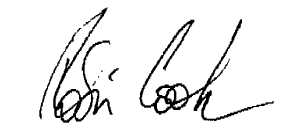 Robin Cook